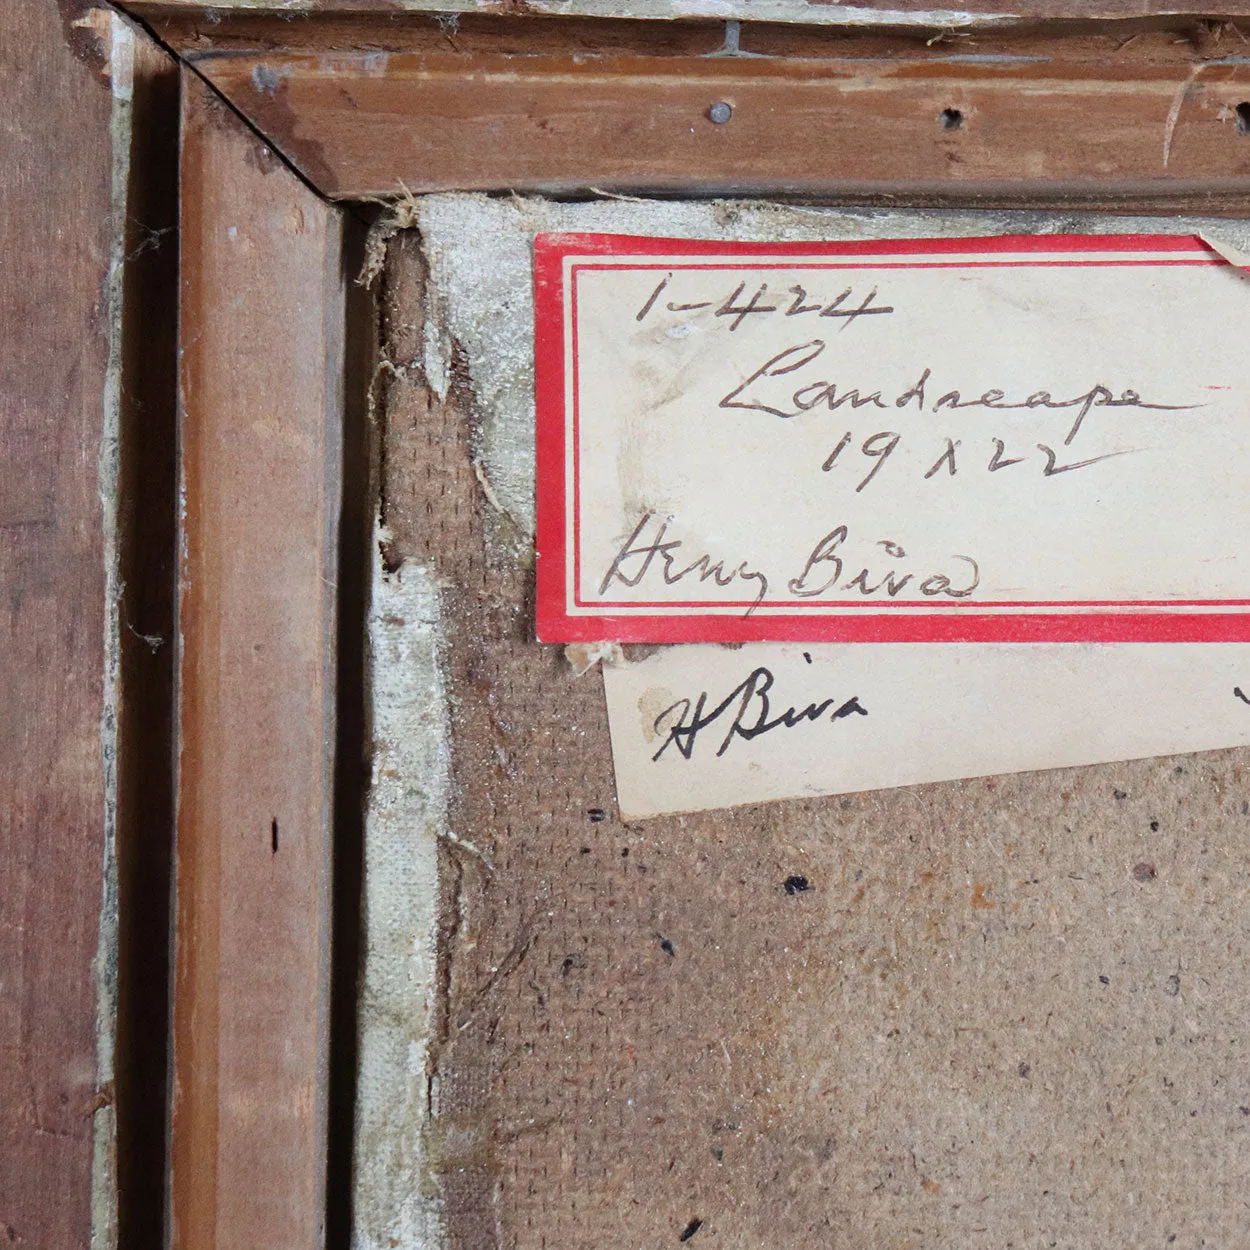 1-424
Landscape
19 x 22
Henry Biva
H Biva